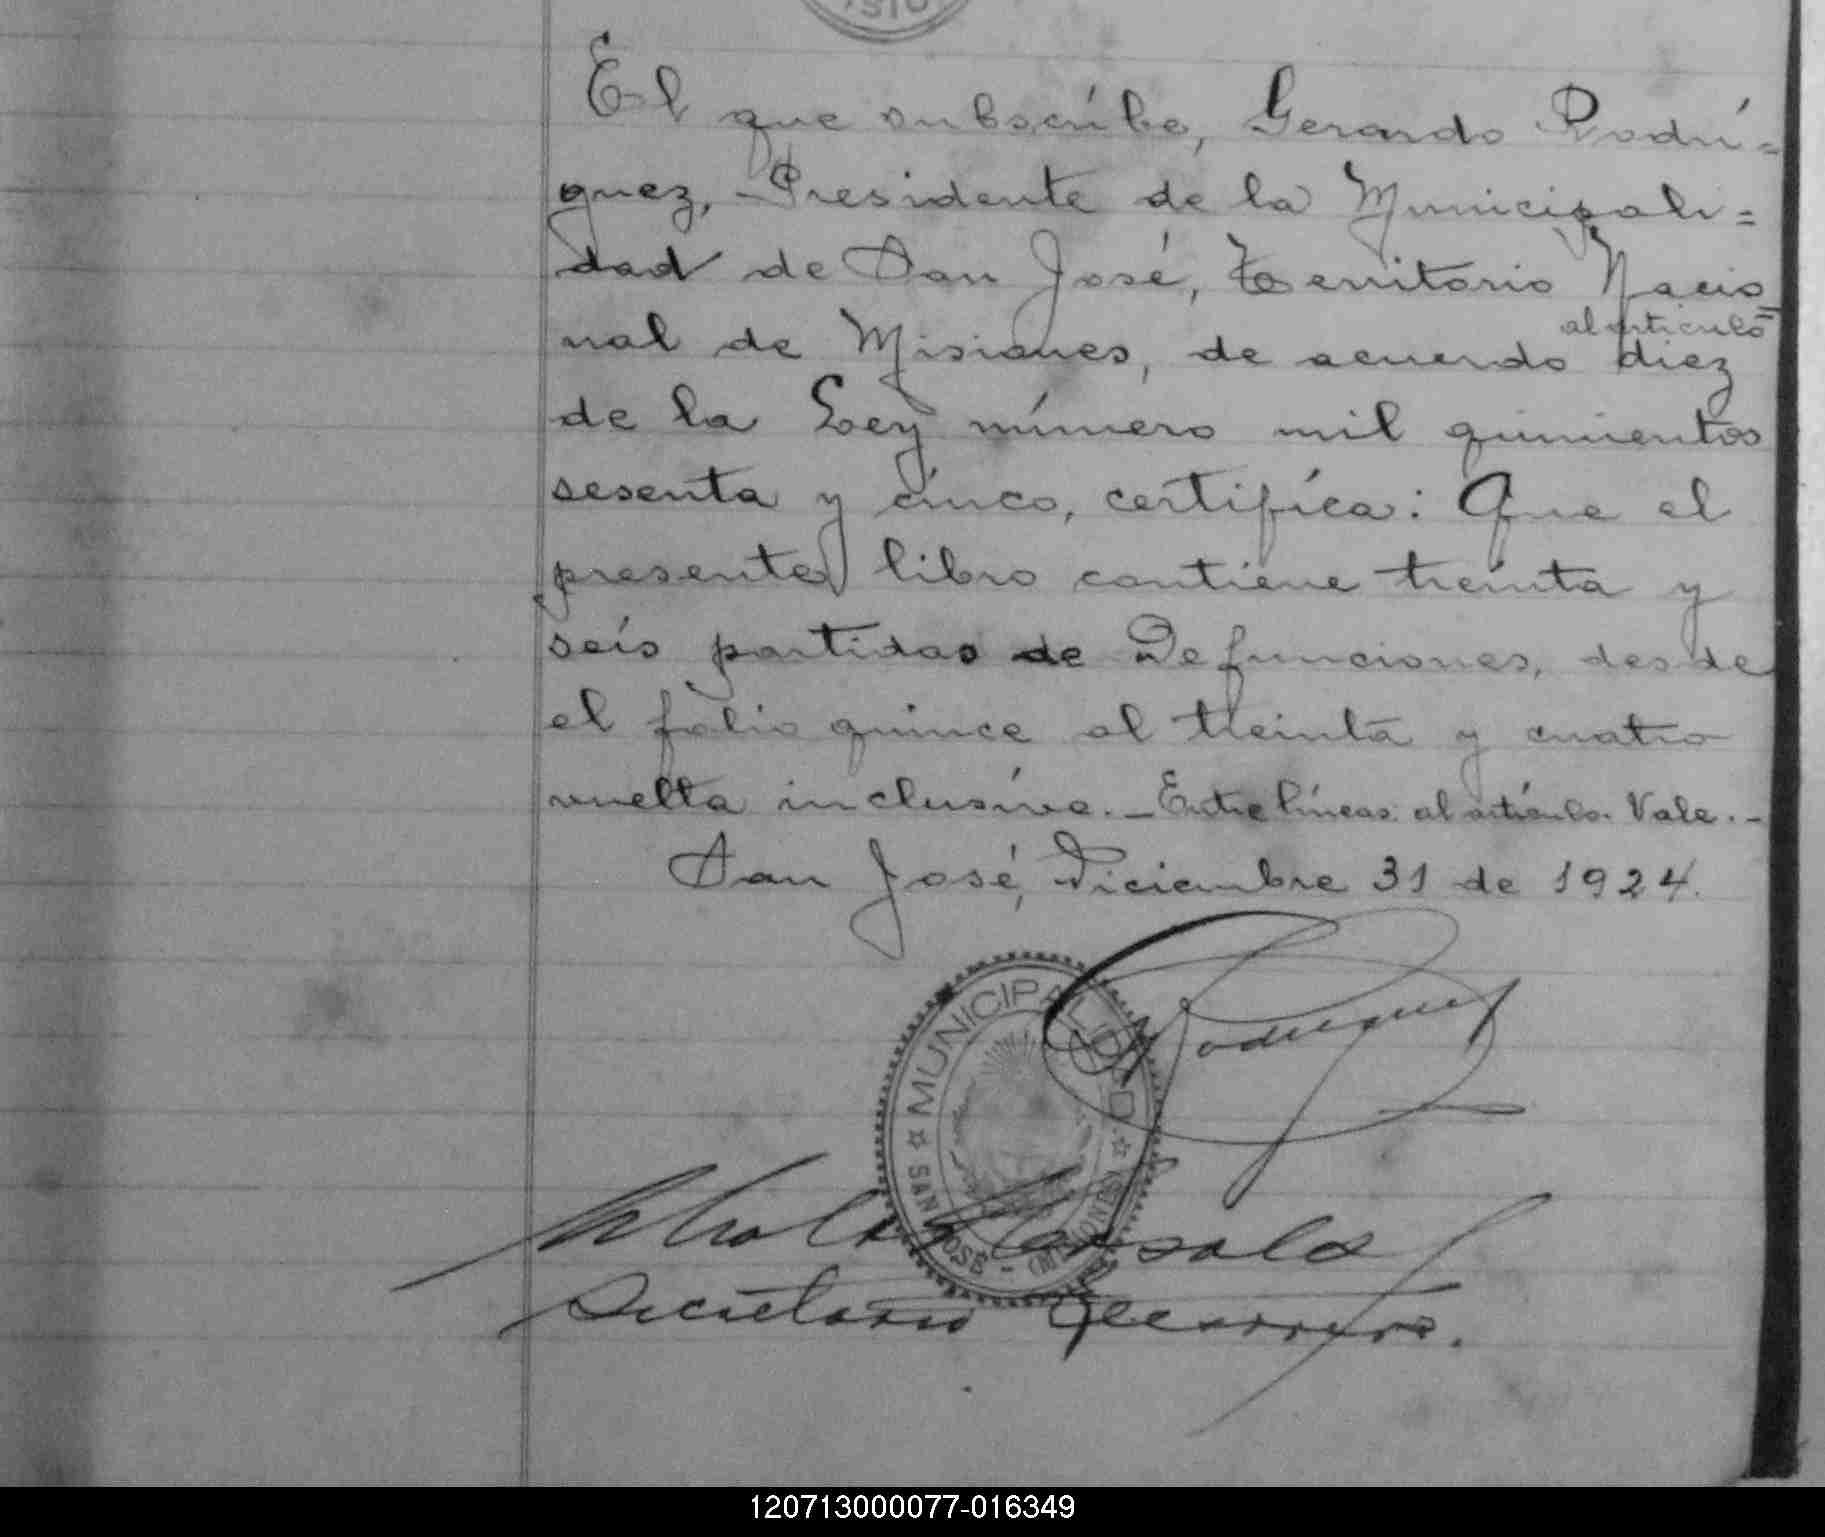 El que subscríbe, Gerardo Rodrí=
guez, Presidente de la Municipali=
dad de San José, Territorio Nacio=
al artículo
nal de Misiones, de acuerdo diez
de la Ley número mil quinientos
sesenta y cinco, certifíca: Que el
presente libro contiene treinta y
seís partidas de Defunciones, desde
el folio quince al treinta y cuatro
vuelta inclusíve.- Entre líneas: al artículo. Vale.-
San José, Diciembre 31 de 1924.
Rodriguez
MUNICIPALIDAD
SAN JOSÉ - (MISIONES)
Secretario Tesorero.
120713000077-016349